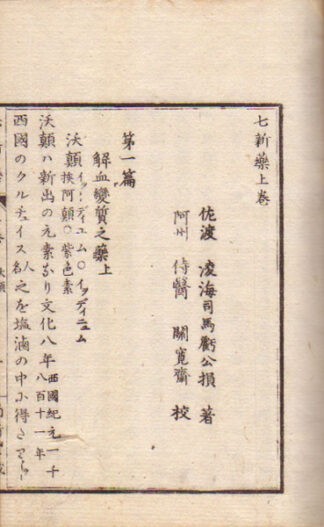 七新藥上卷
佐渡 凌海司馬虧公損 著
阿州 侍醫 關寛齋 校
第一篇
解血變質之藥上
沃顛 挨阿顛〇紫色素
沃顛ハ新出の元素なり文化八年西國紀元一千八百十一年
西國のクルチュイス人名之を塩滷の中に得た